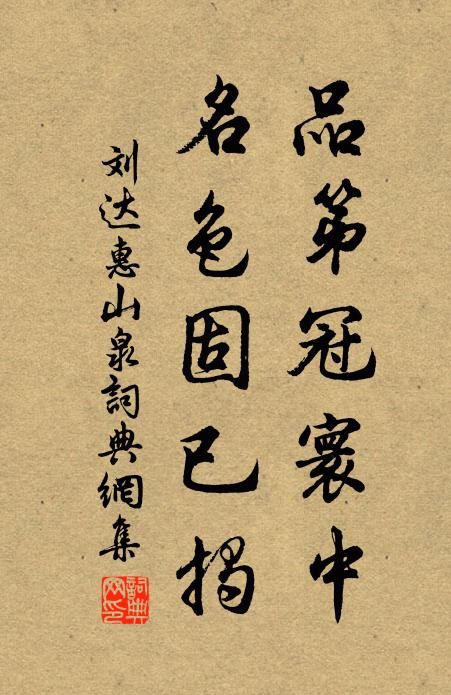 品第冠寰中
名色固已揭
刘达惠山泉詞典網集
詞典网印